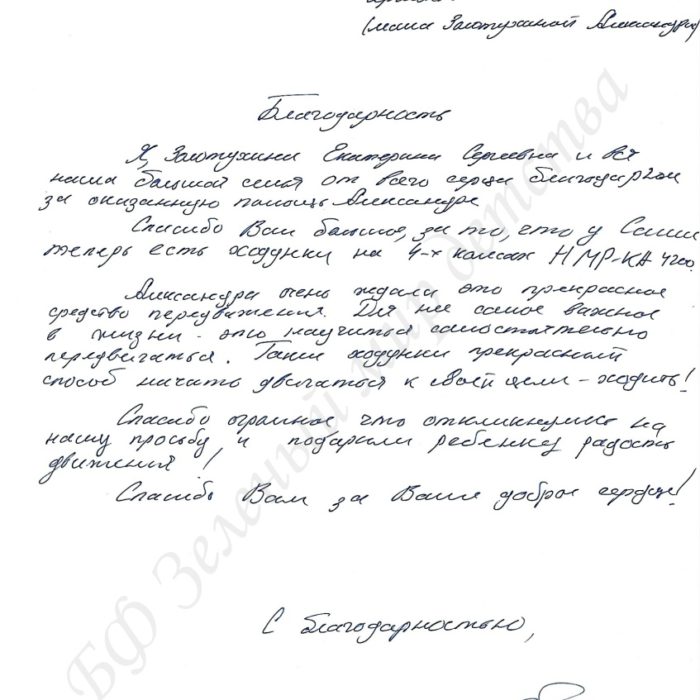 (мама Золотухиной Александры)
Благодарность
Я, Золотухина Екатерина Сергеевна и вся
наша большая семья от всего сердца благодарим
за оказанную помощь Александре
Спасибо Вам большое, за то, что у Саши
теперь есть ходунки на 4-х колесах HMP-KA 4200
Александра очень ждала это прекрасное
средство передвижения. Для нее самое важное
в жизни - это научиться самостоятельно
передвигаться. Такие ходунки прекрасный
способ начать двигаться к своей цели - ходить!
Спасибо огромное что откликнулись на
нашу просьбу, и подарили ребенку радость
движения!
Спасибо Вам за Ваше доброе сердце!
С благодарностью,
БФ Зеленый мир детства